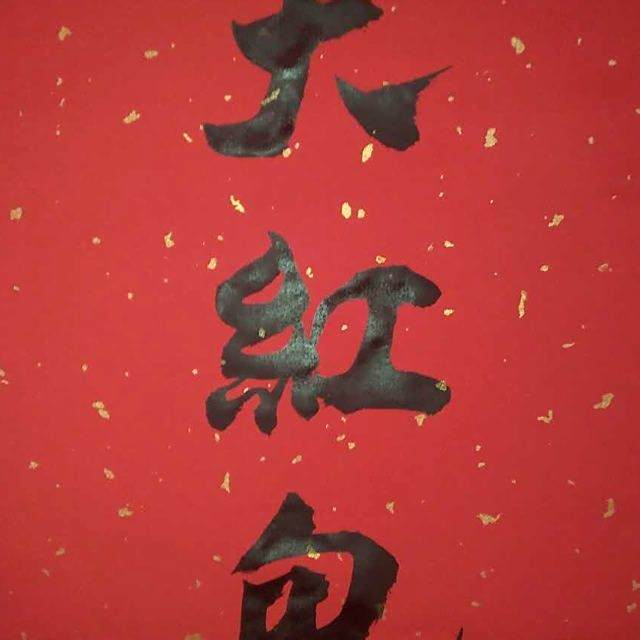 大紅包